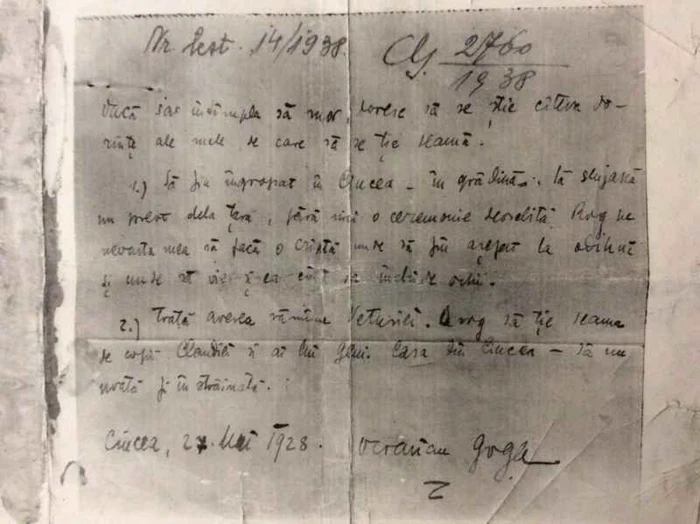 Nr. test. 14/1938. Cj. 2760/1938
Dacă s'ar întâmpla să mor, doresc să se știe câteva do-
rințe ale mele de care să se ție seamă.
1.) Să fiu îngropat în Ciucea – în grădină. Să slujască
un preot dela țară, fără nici o ceremonie deosebită. Rog pe
nevasta mea să facă o criptă unde să fiu așezat la odihnă
și unde să vie și ea când va închide ochii.
2.) Toată averea rămâne Veturiei. O rog să ție seama
de copii Claudiei și ai lui Geni. Casa din Ciucea – să nu
poată fi înstrăinată.
Ciucea, 27. Mai 1928. Octavian Goga